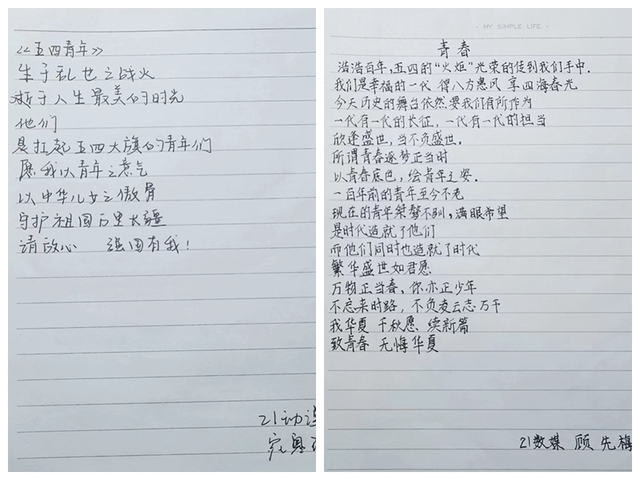 《五四青年》
生于乱世之战火
逝于人生最美的时光
他们
是扛起五四大旗的青年们
愿我以青年之意气
以中华儿女之傲骨
守护祖国万里长疆
请放心 强国有我！
21动
- MY SIMPLE LIFE -
青春
浩浩百年，五四的“火炬”光荣的传到我们手中.
我们是幸福的一代 得八方惠风 享四海春光
今天历史的舞台依然要我们有所作为
一代有一代的长征，一代有一代的担当
欣逢盛世，当不负盛世.
所谓青春逐梦正当时
以青春底色，绘青年之姿.
一百年前的青年至今不老
现在的青年桀骜不驯，满眼希望
是时代造就了他们
而他们同时也造就了时代
繁华盛世如君愿
万物正当春，你亦正少年
不忘来时路，不负凌云志万千
我华夏 千秋愿 续新篇
致青春 无悔华夏
21数媒 顾先梅